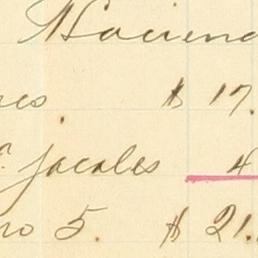 Hacienda
res. $ 17.
a. jacales 4
ro 5. $ 21.